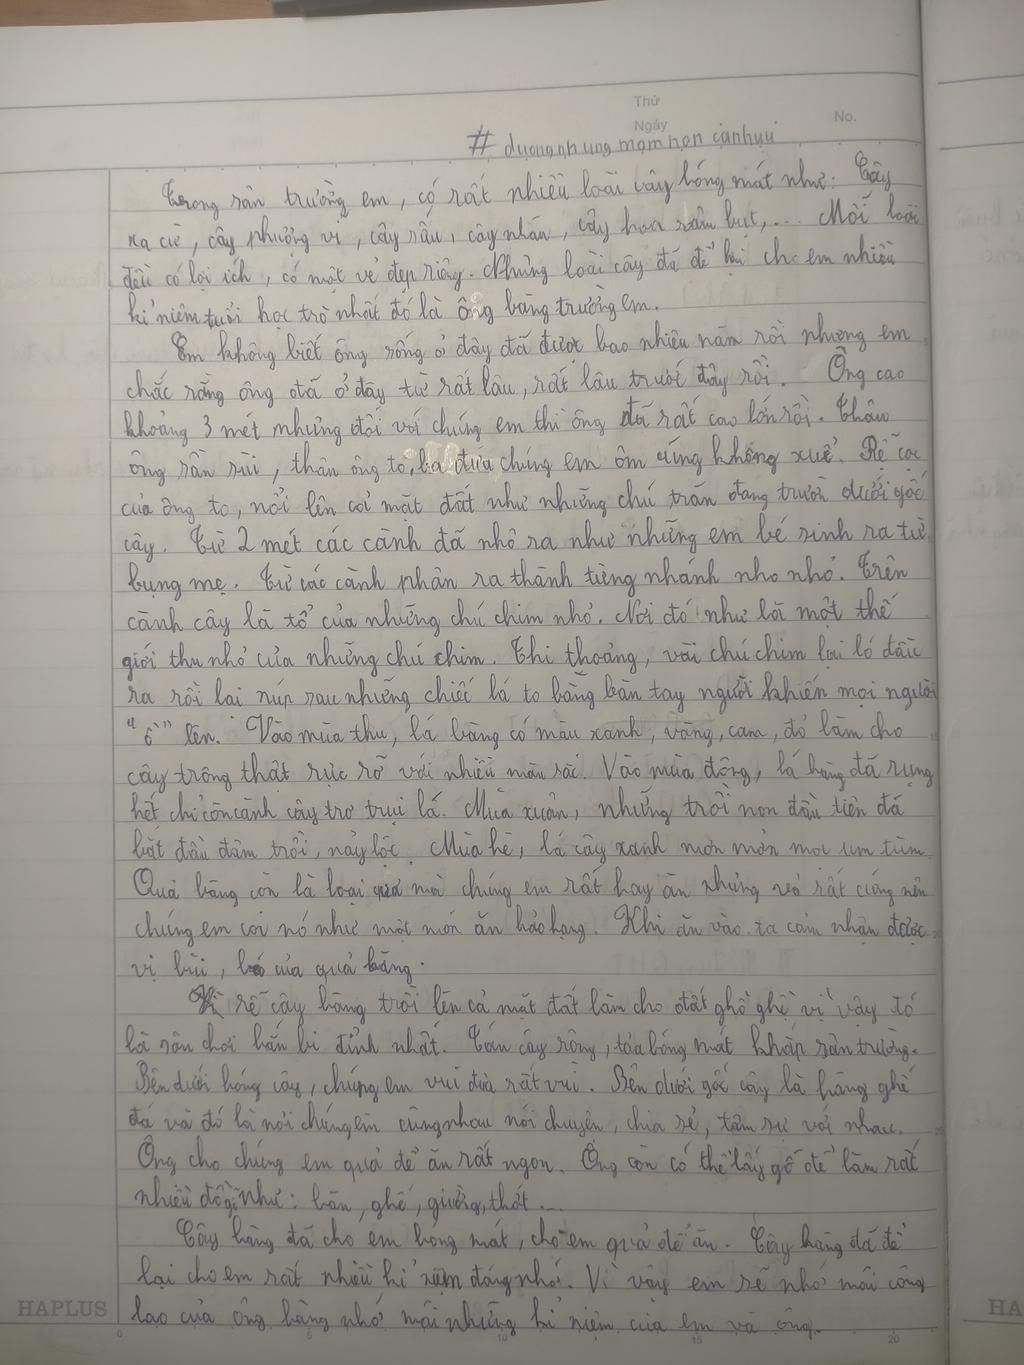 Thứ
Ngày
No.
# duongnhungmamhoncanhuu
Trong sân trường em, có rất nhiều loài cây bóng mát như: Cây
xà cừ, cây phượng vĩ, cây sấu, cây nhãn, cây hoa râm bụt,... Mỗi loài
đều có lợi ích, có một vẻ đẹp riêng. Nhưng loài cây đã để lại cho em nhiều
kỉ niệm tuổi học trò nhất đó là ông bàng trường em.
Em không biết ông sống ở đây đã được bao nhiêu năm rồi nhưng em
chắc rằng ông đã ở đây từ rất lâu, rất lâu trước đây rồi. Ông cao
khoảng 3 mét nhưng đối với chúng em thì ông đã rất cao lớn rồi. Thân
ông sần sùi, thân ông to, ba đứa chúng em ôm cũng không xuể. Rễ của
của ông to, nổi lên cả mặt đất như những chú trăn đang trườn dưới gốc
cây. Từ 2 mét các cành đã nhô ra như những em bé sinh ra từ
bụng mẹ. Từ các cành phân ra thành từng nhánh nho nhỏ. Trên
cành cây là tổ của những chú chim nhỏ. Nơi đó như là một thế
giới thu nhỏ của những chú chim. Thi thoảng, vài chú chim lại ló đầu
ra rồi lại núp sau những chiếc lá to bằng bàn tay người khiến mọi người
"ồ" lên. Vào mùa thu, lá bàng có màu xanh, vàng, cam, đỏ làm cho
cây trông thật rực rỡ với nhiều màu sắc. Vào mùa đông, lá bàng đã rụng
hết chỉ còn cành cây trơ trụi lá. Mùa xuân, những trồi non đầu tiên đã
bắt đầu đâm trồi, nảy lộc. Mùa hè, lá cây xanh mơn mởn mọc um tùm.
Quả bàng còn là loại quả mà chúng em rất hay ăn nhưng vỏ rất cứng nên
chúng em coi nó như một món ăn hảo hạng. Khi ăn vào ta cảm nhận được
vị bùi, của quả bàng.
Vì rễ cây bàng trồi lên cả mặt đất làm cho đất ghồ ghề vì vậy đó
là sân chơi bắn bi đỉnh nhất. Tán cây rộng, tỏa bóng mát khắp sân trường.
Bên dưới bóng cây, chúng em vui đùa rất vui. Bên dưới gốc cây là hàng ghế
đá và đó là nơi chúng em cùng nhau nói chuyện, chia sẻ, tâm sự với nhau.
Ông cho chúng em quả để ăn rất ngon. Ông còn có thể lấy gỗ để làm rất
nhiều đồ gỗ như: bàn, ghế, giường, thớt...
Cây bàng đã cho em bóng mát, cho em quả để ăn. Cây bàng đã để
lại cho em rất nhiều kỉ niệm đáng nhớ. Vì vậy em sẽ nhớ mãi công
lao của ông bàng nhớ mãi những kỉ niệm của em và ông.
HAPLUS
HA
0 5 10 15 20